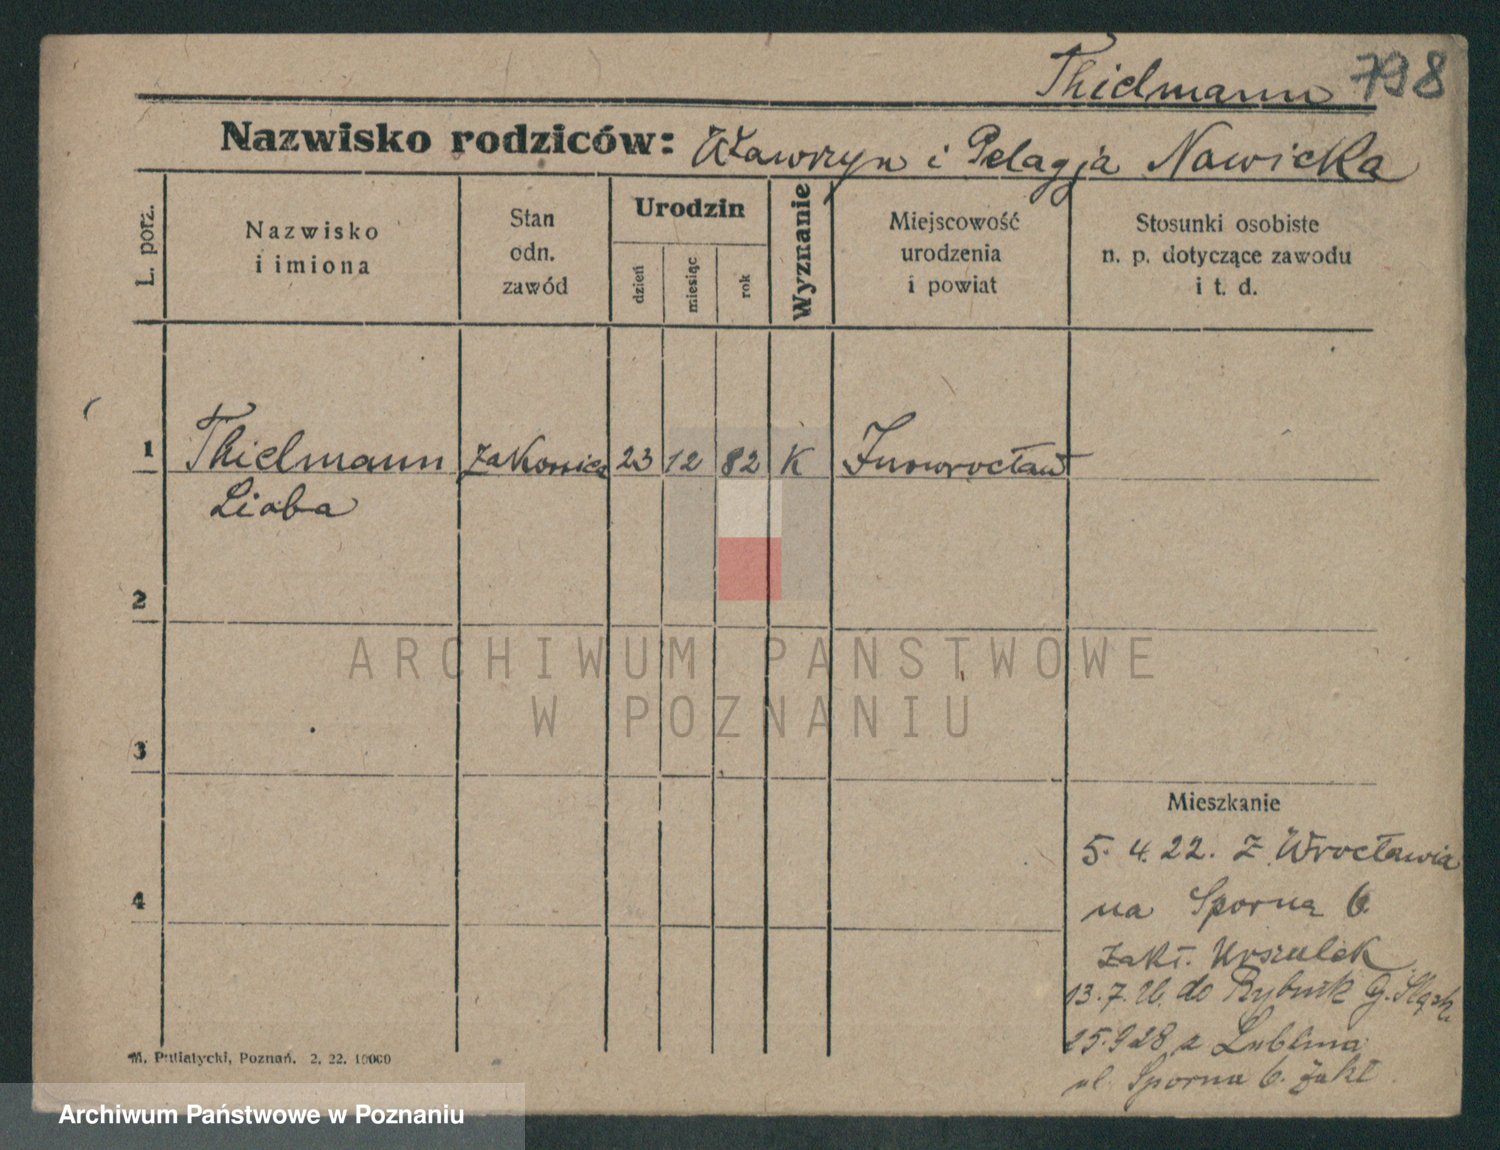 Thielmann 798
Nazwisko rodziców: Wawrzyn i Pelagja Nowicka
L. porz.
Nazwisko
i imiona
Stan
odn.
zawód
Urodzin
dzień
miesiąc
rok
Wyznanie
Miejscowość
urodzenia
i powiat
Stosunki osobiste
n. p. dotyczące zawodu
i t. d.
1 Thielmann zakonnica 23 12 82 K Inowrocław
Lioba
2
3
4
Mieszkanie
5. 4. 22. z Wrocławia
na Sporną 6.
zakł. Urszulek
13. 7. 26. do Rybnik G. Śląsk
25.9 28 z Lublina
ul. Sporna 6. zakł
M. Putiatycki, Poznań. 2. 22. 10000
ARCHIWUM PAŃSTWOWE
W POZNANIU
Archiwum Państwowe w Poznaniu